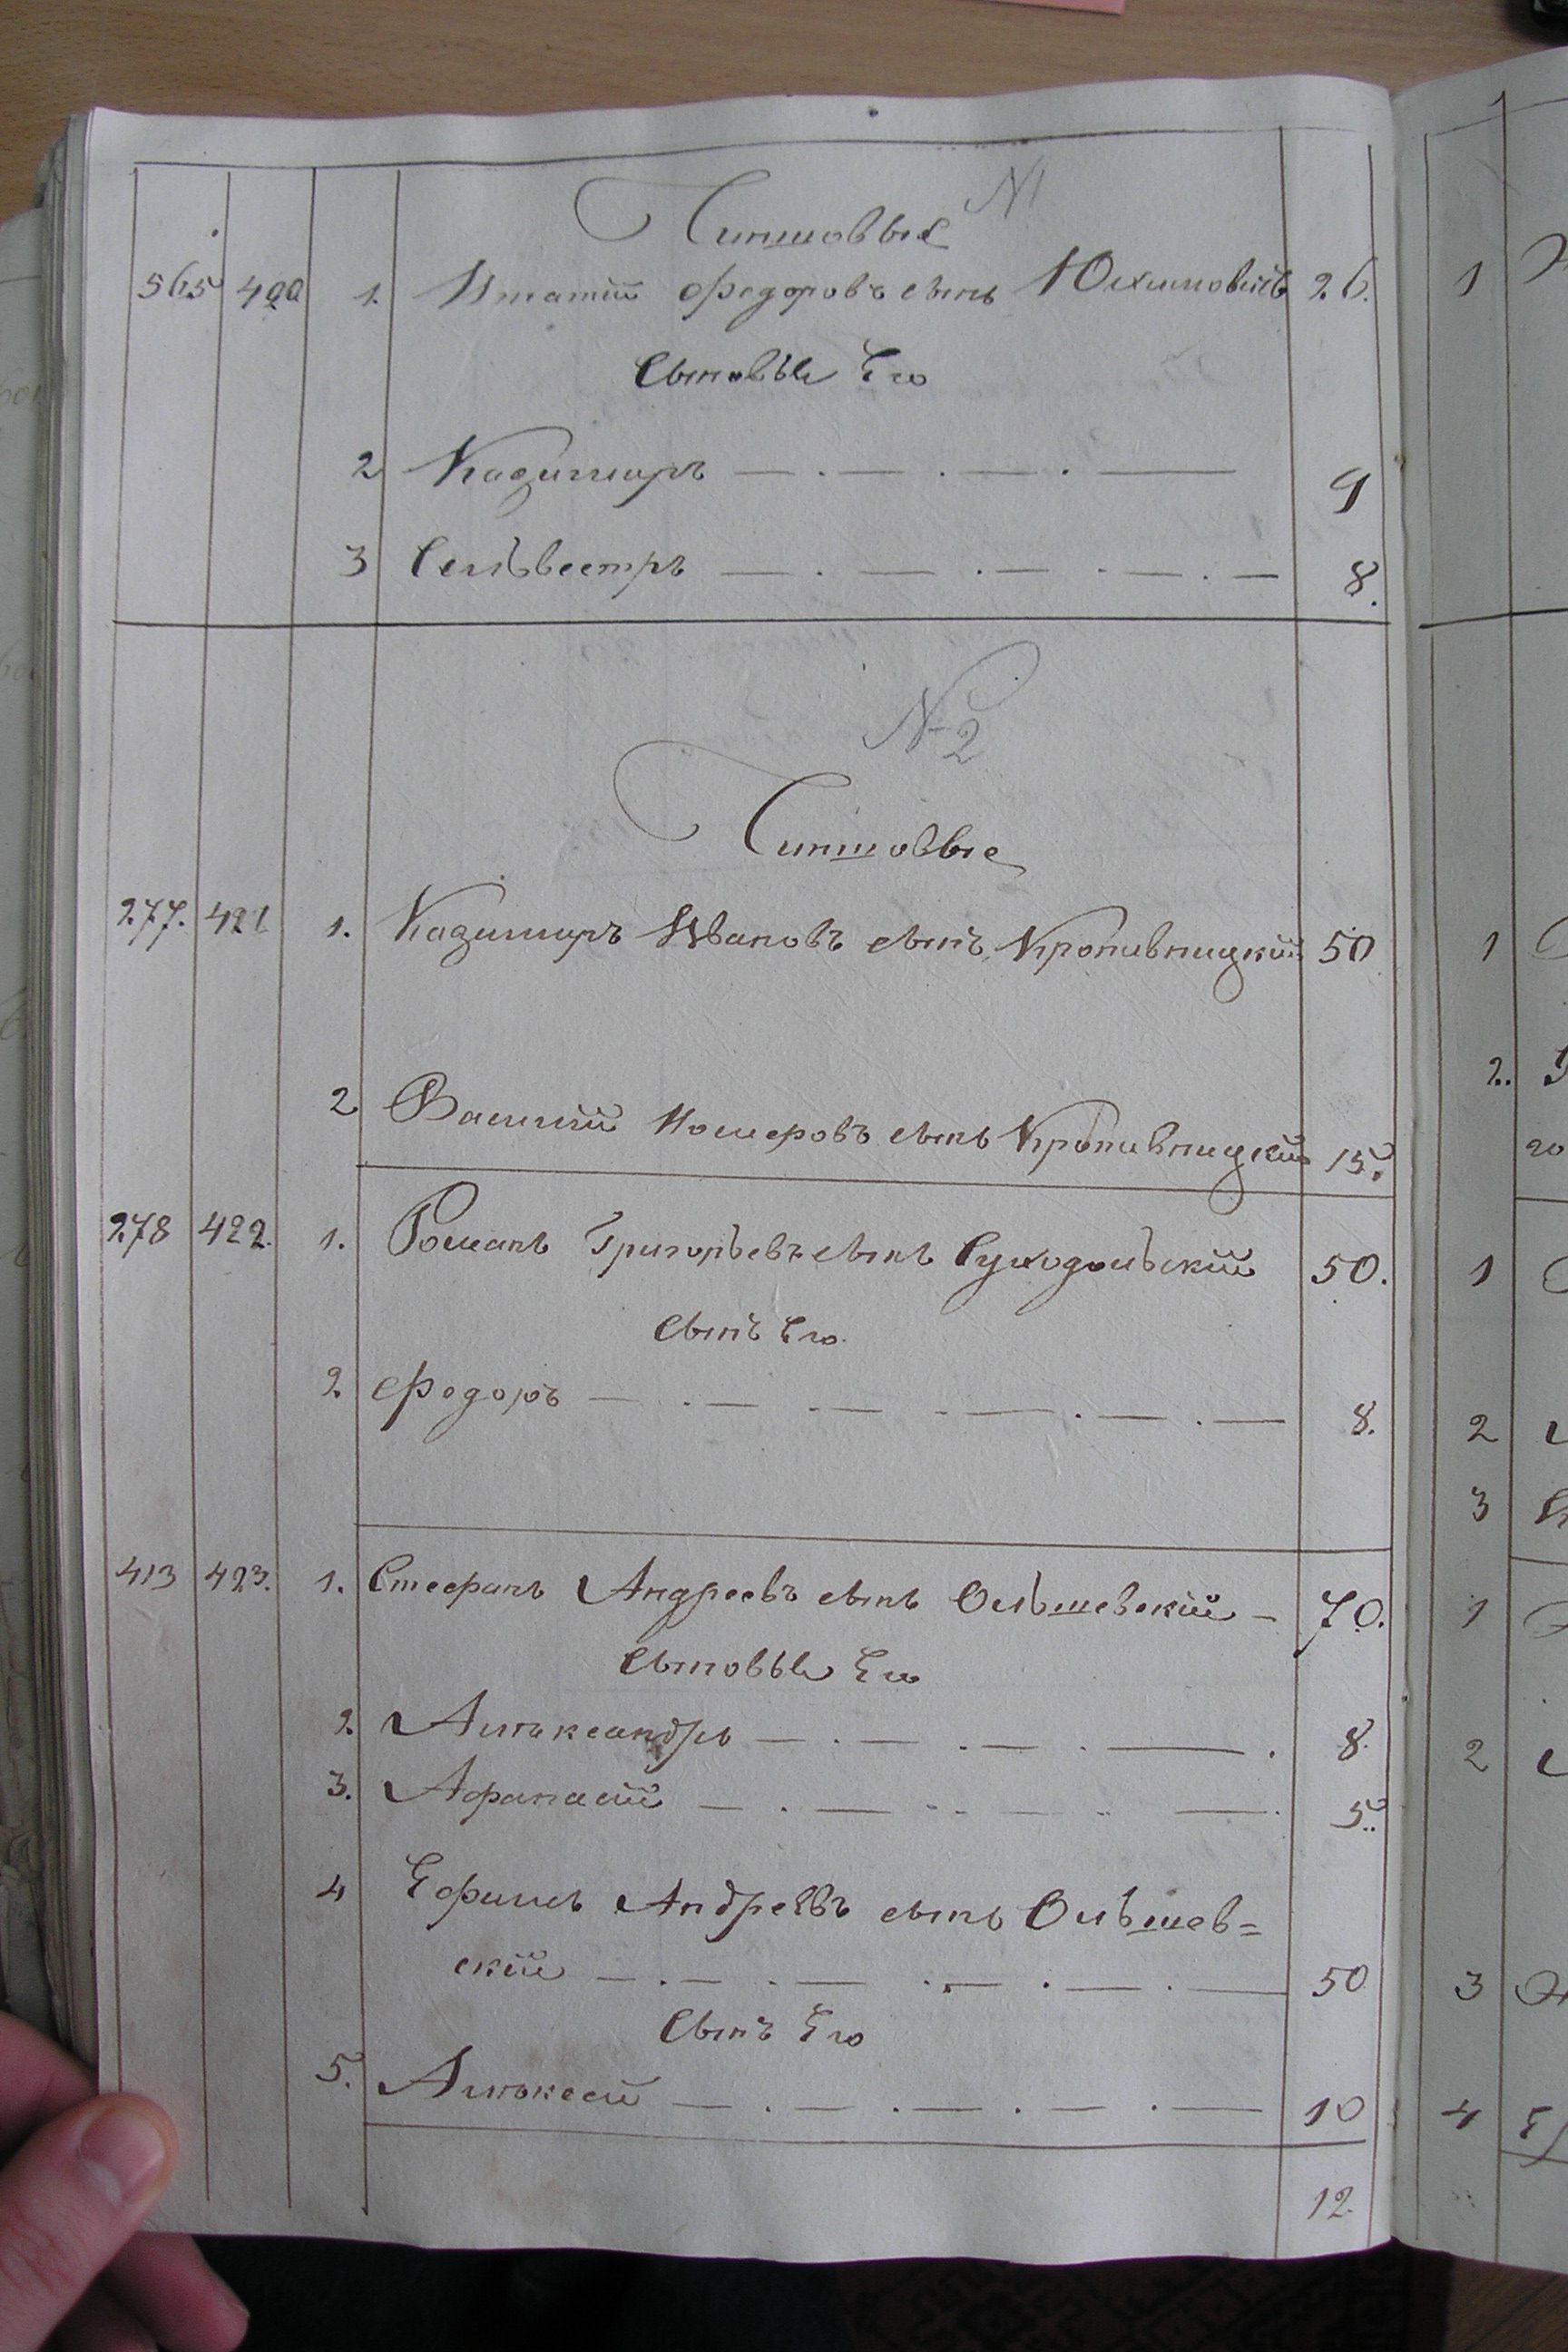 N1
Чиншовые
565 420 1. Игнатий Федоровъ сынъ Юхимовичъ 26.
Сыновья Его
2 Казимиръ 9
3 Сельвестръ 8.
N 2
Чиншовые
277. 421 1. Казимиръ Ивановъ сынъ Кропивницкий 50
2 Василий сынъ Кропивницкий 15.
278 422. 1. Романъ Григорьевъ сынъ Суходольский 50.
Сынъ Его
2. Федоръ 8.
413 423. 1. Стефанъ Андреевъ сынъ Ольшевский - 70.
Сыновья Его
2. Алѣксандръ 8.
3. Афанасий 5.
4 Ефимъ Андреевъ сынъ Ольшев=
ский 50
Сынъ Его
5. Алѣксей 10
12.
1
1
2.
го
1
2
3
1
2
3
4